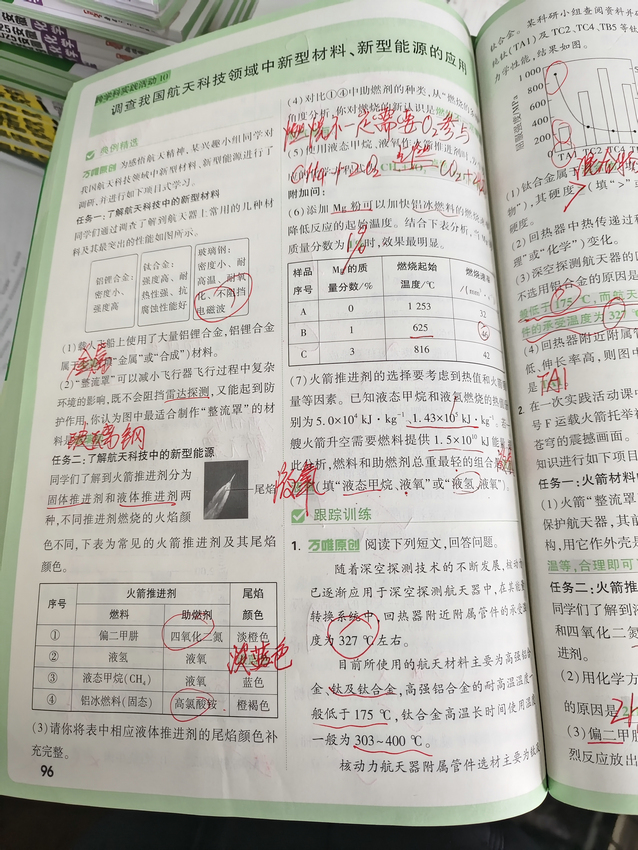 跨学科实践活动10
调查我国航天科技领域中新型材料、新型能源的应用
典例精选
万唯原创 为感悟航天精神,某兴趣小组同学对
我国航天科技领域中新型材料、新型能源进行了
调研,并进行如下项目式学习。
任务一:了解航天科技中的新型材料
同学们通过调查了解到航天器上常用的几种材
料及其最突出的性能如图所示。
铝锂合金:
密度小、
强度高
钛合金:
强度高、耐
热性强、抗
腐蚀性能好
玻璃钢:
密度小、耐
高温、耐氧
化、不阻挡
电磁波
(1)载人飞船上使用了大量铝锂合金,铝锂合金
属于金属(填“金属”或“合成”)材料。
(2)“整流罩”可以减小飞行器飞行过程中复杂
环境的影响,既不会阻挡雷达探测,又能起到防
护作用,你认为图中最适合制作“整流罩”的材
料是玻璃钢
任务二:了解航天科技中的新型能源
同学们了解到火箭推进剂分为
固体推进剂和液体推进剂两
种,不同推进剂燃烧的火焰颜
尾焰
色不同,下表为常见的火箭推进剂及其尾焰
颜色。
序号 火箭推进剂 尾焰
燃料 助燃剂 颜色
① 偏二甲肼 四氧化二氮 淡橙色
② 液氢 液氧 淡蓝色
③ 液态甲烷(CH₄) 液氧 蓝色
④ 铝冰燃料(固态) 高氯酸铵 橙褐色
(3)请你将表中相应液体推进剂的尾焰颜色补
充完整。
96
(4)对比①~④中助燃剂的种类,从“燃烧的
角度分析,你对燃烧的新认识是
燃烧不一定需要O₂参与
(5)使用液态甲烷、液氧作火箭推进剂
CH₄+2O₂ 点燃 CO₂+
附加问:
(6)添加Mg粉可以加快铝冰燃料的燃烧
降低反应的起始温度。结合下表分析,当
质量分数为1%时,效果最明显。
样品 Mg的质 燃烧起始 燃烧速率
序号 量分数/% 温度/℃ /(mm·
A 0 1 253 32
B 1 625 46
C 3 816 42
(7)火箭推进剂的选择要考虑到热值和火箭
量等因素。已知液态甲烷和液氢燃烧的热
别为5.0×10⁴ kJ·kg⁻¹、1.43×10⁵ kJ·kg⁻¹。若一
艘火箭升空需要燃料提供1.5×10¹⁰ kJ能量,
此分析,燃料和助燃剂总重量轻的组合
液氢 液氧(填“液态甲烷、液氧”或“液氢、液氧”)。
跟踪训练
1. 万唯原创 阅读下列短文,回答问题。
随着深空探测技术的不断发展,核动力
已逐渐应用于深空探测航天器中,在其能量
转换系统中,回热器附近附属管件的承受温
度为327 ℃左右。
目前所使用的航天材料主要为高强铝合
金、钛及钛合金,高强铝合金的耐高温温度一
般低于175 ℃,钛合金高温长时间使用温度
一般为303~400 ℃。
核动力航天器附属管件选材主要为钛
钛合金。某科研小组查阅资料并
纯钛(TA1)及TC2、TC4、TB5等钛
力学性能,结果如图。
屈服强度/MPa
1 000
800
600
400
200
0
TA1 TC2 TC4
(1)钛合金属于混合物
物”),其硬度>(填“>”
硬度。
(2)回热器中热传递过程
理”或“化学”)变化。
(3)深空探测航天器的
不选用铝合金的原因是
最低于175 ℃,而航天
件的承受温度为327 ℃
(4)回热器附近附属管
低、伸长率高,则图中
是TA1
2. 在一次实践活动课中
号F运载火箭托举
苍穹的震撼画面。
知识进行如下项目
任务一:火箭材料
(1)火箭“整流罩
保护航天器,其前
构,用它作外壳是
温等,合理即可
任务二:火箭推
同学们了解到
和四氧化二氮
进剂。
(2)用化学方
的原因是2H
(3)偏二甲肼
烈反应放出